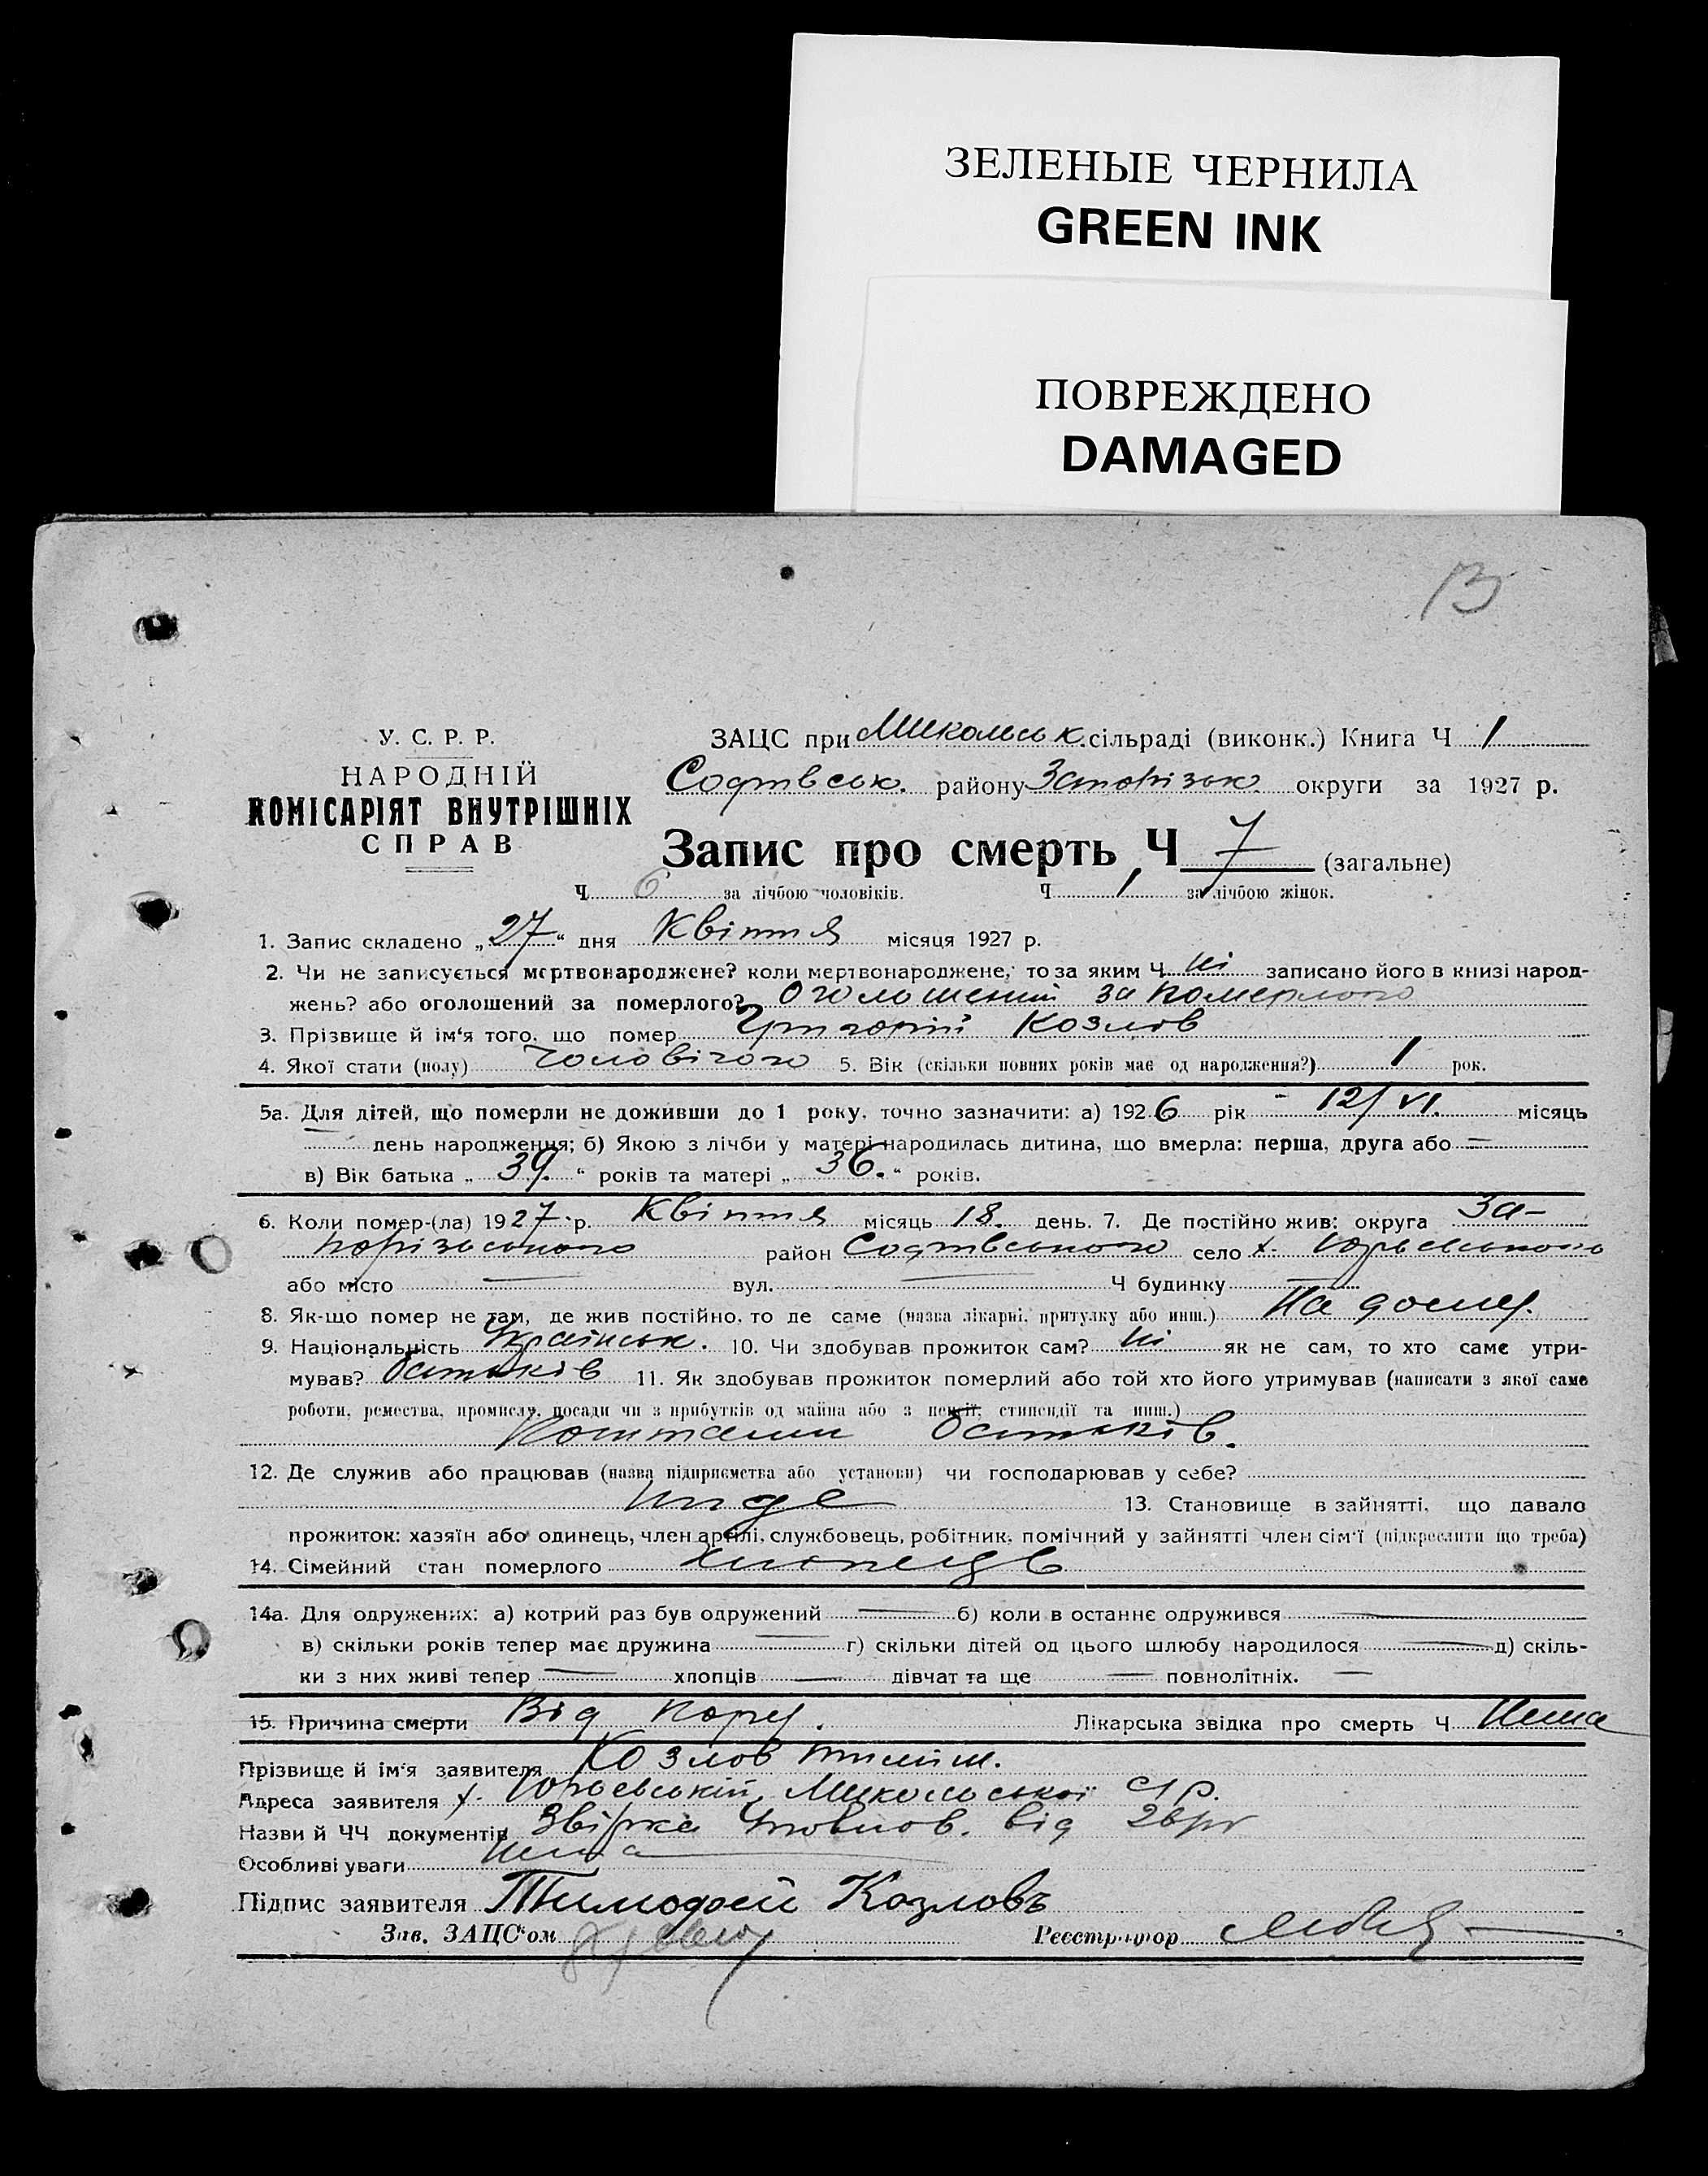 ЗЕЛЕНЫЕ ЧЕРНИЛА
GREEN INK
ПОВРЕЖДЕНО
DAMAGED
13
У. С. Р. Р.
НАРОДНІЙ
КОМІСАРІЯТ ВНУТРІШНІХ
СПРАВ
ЗАЦС при Микольськ. сільраді (виконк.) Книга Ч 1
Софіївськ. району Запорізьк. округи за 1927 р.
Запис про смерть Ч 7 (загальне)
Ч 6 за лічбою чоловіків. Ч 1 за лічбою жінок.
1. Запис складено „27“ дня Квітня місяця 1927 р.
2. Чи не записується мертвонароджене? коли мертвонароджене, то за яким Ч Ні записано його в книзі народ-
жень? або оголошений за померлого? Оголошений за померлого
3. Прізвище й ім'я того, що помер Григорій Козлов
4. Якої стати (полу) Чоловічого 5. Вік (скільки повних років має од народження?) 1 рок.
5а. Для дітей, що померли не доживши до 1 року, точно зазначити: а) 1926 рік 12/VI. місяць
— день народження; б) Якою з лічби у матері народилась дитина, що вмерла: перша, друга або —
в) Вік батька „39.“ років та матері „36.“ років.
6. Коли помер-(ла) 1927 р. Квітня місяць 18. день. 7. Де постійно жив: округа За-
порізького район Софіївського село х. Юрьевського
або місто — вул. — Ч будинку —
8. Як-що помер не там, де жив постійно, то де саме (назва лікарні, притулку або инш.) На дому.
9. Національність Українськ. 10. Чи здобував прожиток сам? Ні як не сам, то хто саме утри-
мував? Батьків 11. Як здобував прожиток померлий або той хто його утримував (написати з якої саме
роботи, ремества, промислу, посади чи з прибутків од майна або з пенсії, стипендії та инш.)
Коштами батьків.
12. Де служив або працював (назва підприємства або установи) чи господарював у себе?
13. Становище в зайнятті, що давало
прожиток: хазяїн або одинець, член артілі, службовець, робітник, помічний у зайнятті член сім'ї (підкреслити що треба)
14. Сімейний стан померлого Хлопець
14а. Для одружених: а) котрий раз був одружений — б) коли в останнє одружився —
в) скільки років тепер має дружина — г) скільки дітей од цього шлюбу народилося — д) скіль-
ки з них живі тепер — хлопців — дівчат та ще — повнолітніх. —
15. Причина смерти Від кору. Лікарська звідка про смерть Ч Нема
Прізвище й ім'я заявителя Козлов Тиміш.
Адреса заявителя х. Юрьевській, Микольської с/р.
Назви й ЧЧ документів Звірка від
Особливі уваги Нема
Підпис заявителя Тимофей Козловъ
Зав. ЗАЦС'ом
Реєстратор